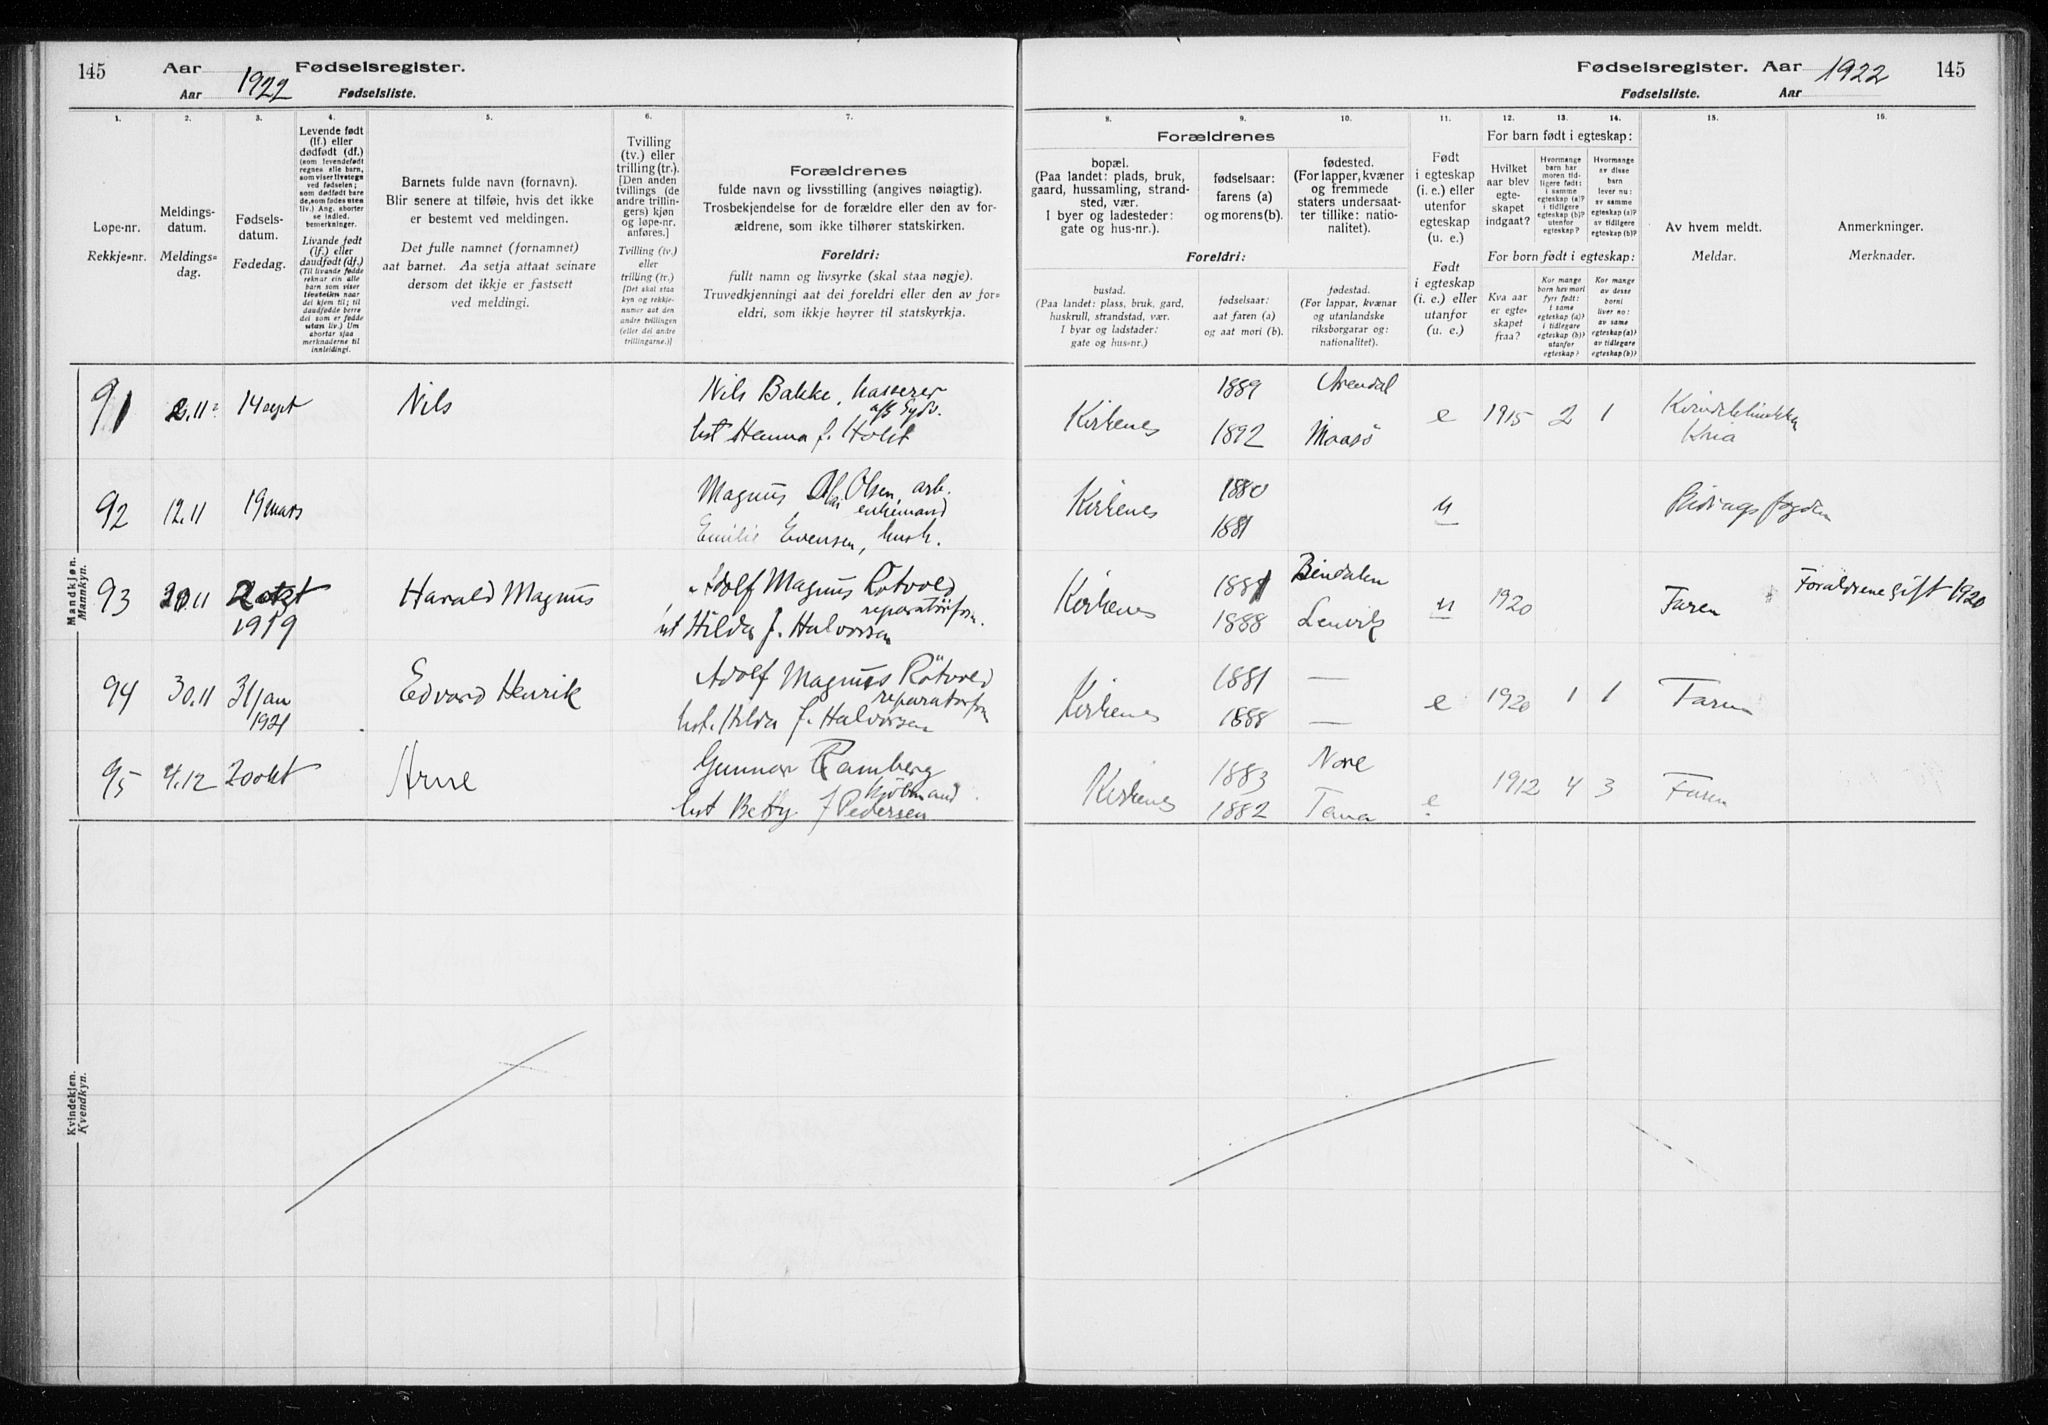 145 Aar 1922 Fødselsregister.
Aar Fødselsliste.
1. 2. 3. 4. 5. 6. 7.
Løpe-nr.
Rekkje=nr.
Meldings-
datum.
Meldings=
dag.
Fødsels-
datum.
Fødedag.
Levende født
(lf.) eller
dødfødt (df.)
(som levendefødt
regnes alle barn,
som viser livstegn
ved fødselen;
som dødfødt bare
de, som fødes uten
liv.) Ang. aborter
se indled.
bemerkninger.
Livande født
(lf.) eller
daudfødt (df.)
(Til livande fødde
reknar ein alle
barn som viser
livsteikn naar
dei kjem til; til
daudfødde berre
dei som er fødde
utan liv.) Um
abortar sjaa
merknaderne til
innleidingi.
Barnets fulde navn (fornavn).
Blir senere at tilføie, hvis det ikke
er bestemt ved meldingen.
Det fulle namnet (fornamnet)
aat barnet. Aa setja attaat seinare
dersom det ikkje er fastsett
ved meldingi.
Tvilling
(tv.) eller
trilling (tr.).
[Den anden
tvillings (de
andre trillin-
gers) kjøn
og løpe-nr.
anføres.]
Tvilling (tv.)
eller
trilling (tr.)
[Det skal staa
kyn og rekkje-
numer aat den
andre tvillingen
(eller dei andre
trillingarne.)]
Forældrenes
fulde navn og livsstilling (angives nøiagtig).
Trosbekjendelse for de forældre eller den av for-
ældrene, som ikke tilhører statskirken.
Foreldri:
fullt namn og livsyrke (skal staa nøgje).
Truvedkjenningi aat dei foreldri eller den av for=
eldri, som ikkje høyrer til statskyrkja.
Mandkjøn.
Mannkyn.
91 2.11 14 sept Nils
Nils Bakke, kasserer
a/s Sydv.
hst Hanna f. Holst
92 12.11 19 mars
Magnus Olsen, arb.
enkemand
Emilie Evensen, hush.
93 30.11 2 okt
1919
Harald Magnus
Adolf Magnus Rötvold
reparatörform.
hst Hilda f. Halvorsen
94 30.11 31 jan
1921
Edvard Henrik
Adolf Magnus Rötvold
reparatörform
hst. Hilda f. Halvorsen
95 4.12 20 okt Arne
Gunnar Ramberg
kjöbmand.
hst Betty f Pedersen
Kvindekjøn.
Kvendkyn.
Fødselsregister. Aar 1922 145
Fødselsliste. Aar
8. 9. 10. 11. 12. 13. 14. 15. 16.
Forældrenes
bopæl.
(Paa landet: plads, bruk,
gaard, hussamling, strand-
sted, vær.
I byer og ladesteder:
gate og hus-nr.).
fødselsaar:
farens (a)
og morens (b).
fødested.
(For lapper, kvæner
og fremmede
staters undersaat-
ter tillike: natio-
nalitet).
Foreldri:
bustad.
(Paa landet: plass, bruk, gard,
huskrull, strandstad, vær.
I byar og ladstader:
gate og hus=nr.)
fødselsaar:
aat faren (a)
og aat mori (b).
fødestad.
(For lappar, kvænar
og utanlandske
riksborgarar og:
nationalitet).
Født
i egteskap
(i. e.) eller
utenfor
egteskap
(u. e.)
Født
i egteskap
(i. e.) eller
utanfor
(u. e.)
For barn født i egteskap:
Hvilket
aar blev
egte-
skapet
indgaat?
Hvormange
barn har
moren tid-
ligere født:
i samme
egteskap (a)?
i tidligere
egteskap (b)?
utenfor
egteskap?
Hvormange
av disse
barn
lever nu:
av samme
egteskap (a)?
av tidligere
egteskap (b)?
For born født i egteskap:
Kva aar
er egte=
skapet
fraa?
Kor mange
born hev mori
fyrr født:
i same
egteskap (a)?
i tidlegare
egteskap (b)?
utanfor
egteskap?
Kor mange
av desse
borni
liver no:
av same
egteskap (a)?
av tidlegare
egteskap (b)?
Av hvem meldt.
Meldar.
Anmerkninger.
Merknader.
Kirkenes 1889 Arendal
1892 Maasö
e 1915 2 1
Kvindeklinikken
Kria
Kirkenes 1880
1881
u
Bidragsfogden
Kirkenes 1881 Bindalen
1888 Lenvik
u 1920 Faren Foraldrene gift 1920
Kirkenes 1881 —
1888 —
e 1920 1 1 Faren
Kirkenes 1883 Nore
1882 Tana
e 1912 4 3 Faren